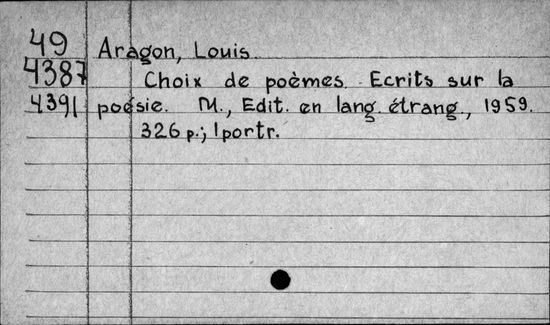 49 Aragon, Louis.
4387 Choix de poèmes. Ecrits sur la
4391 poésie. M., Edit. en lang. étrang., 1959.
326 p.; 1 portr.